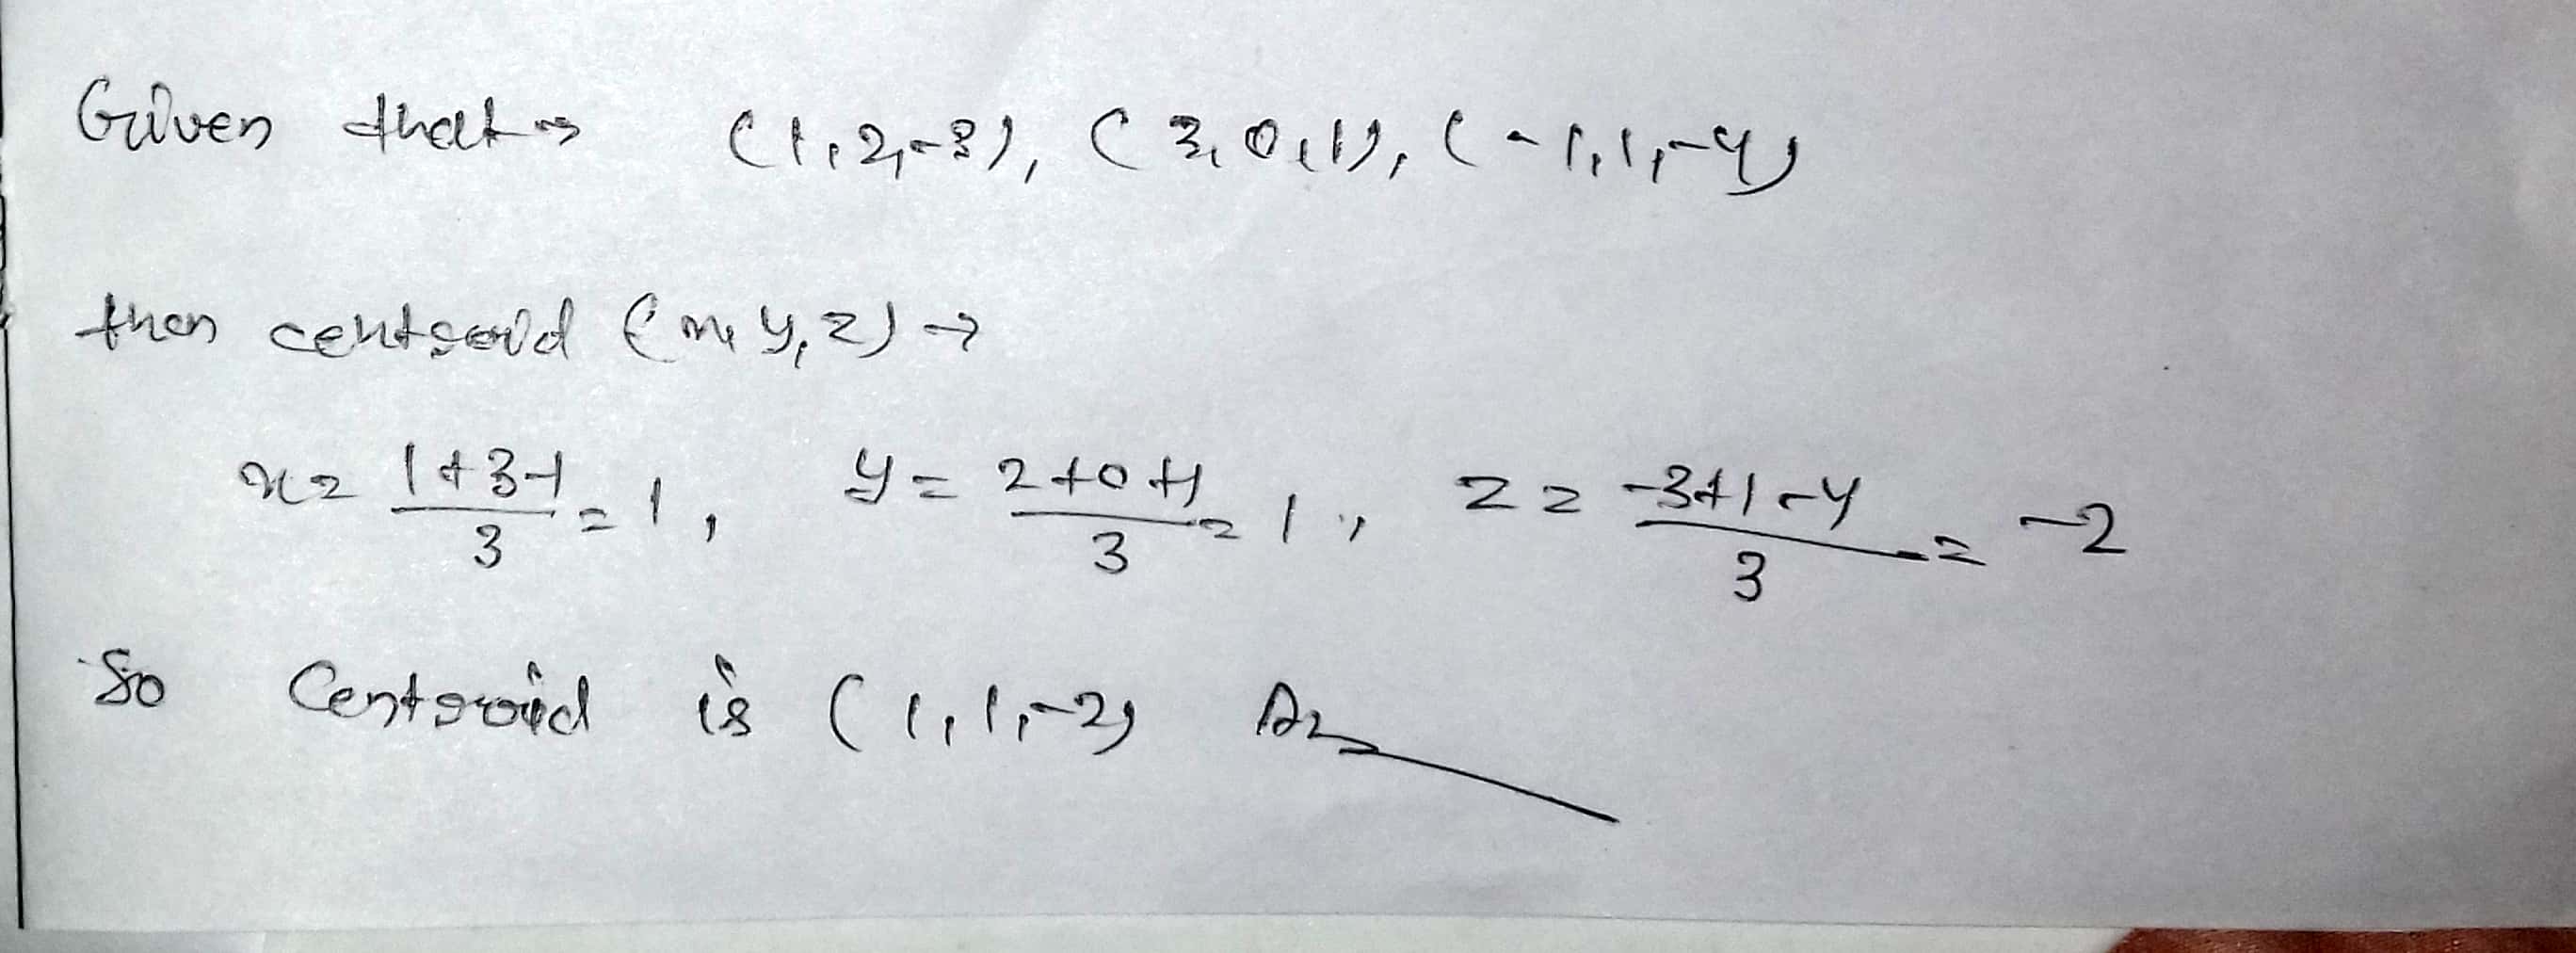 Given that → (1,2,-3), (3,0,1), (-1,1,-4)
then centroid (x, y, z) →
x = \frac{1+3-1}{3} = 1, y = \frac{2+0+1}{3} = 1, z = \frac{-3+1-4}{3} = -2
So Centroid is (1,1,-2) Ans